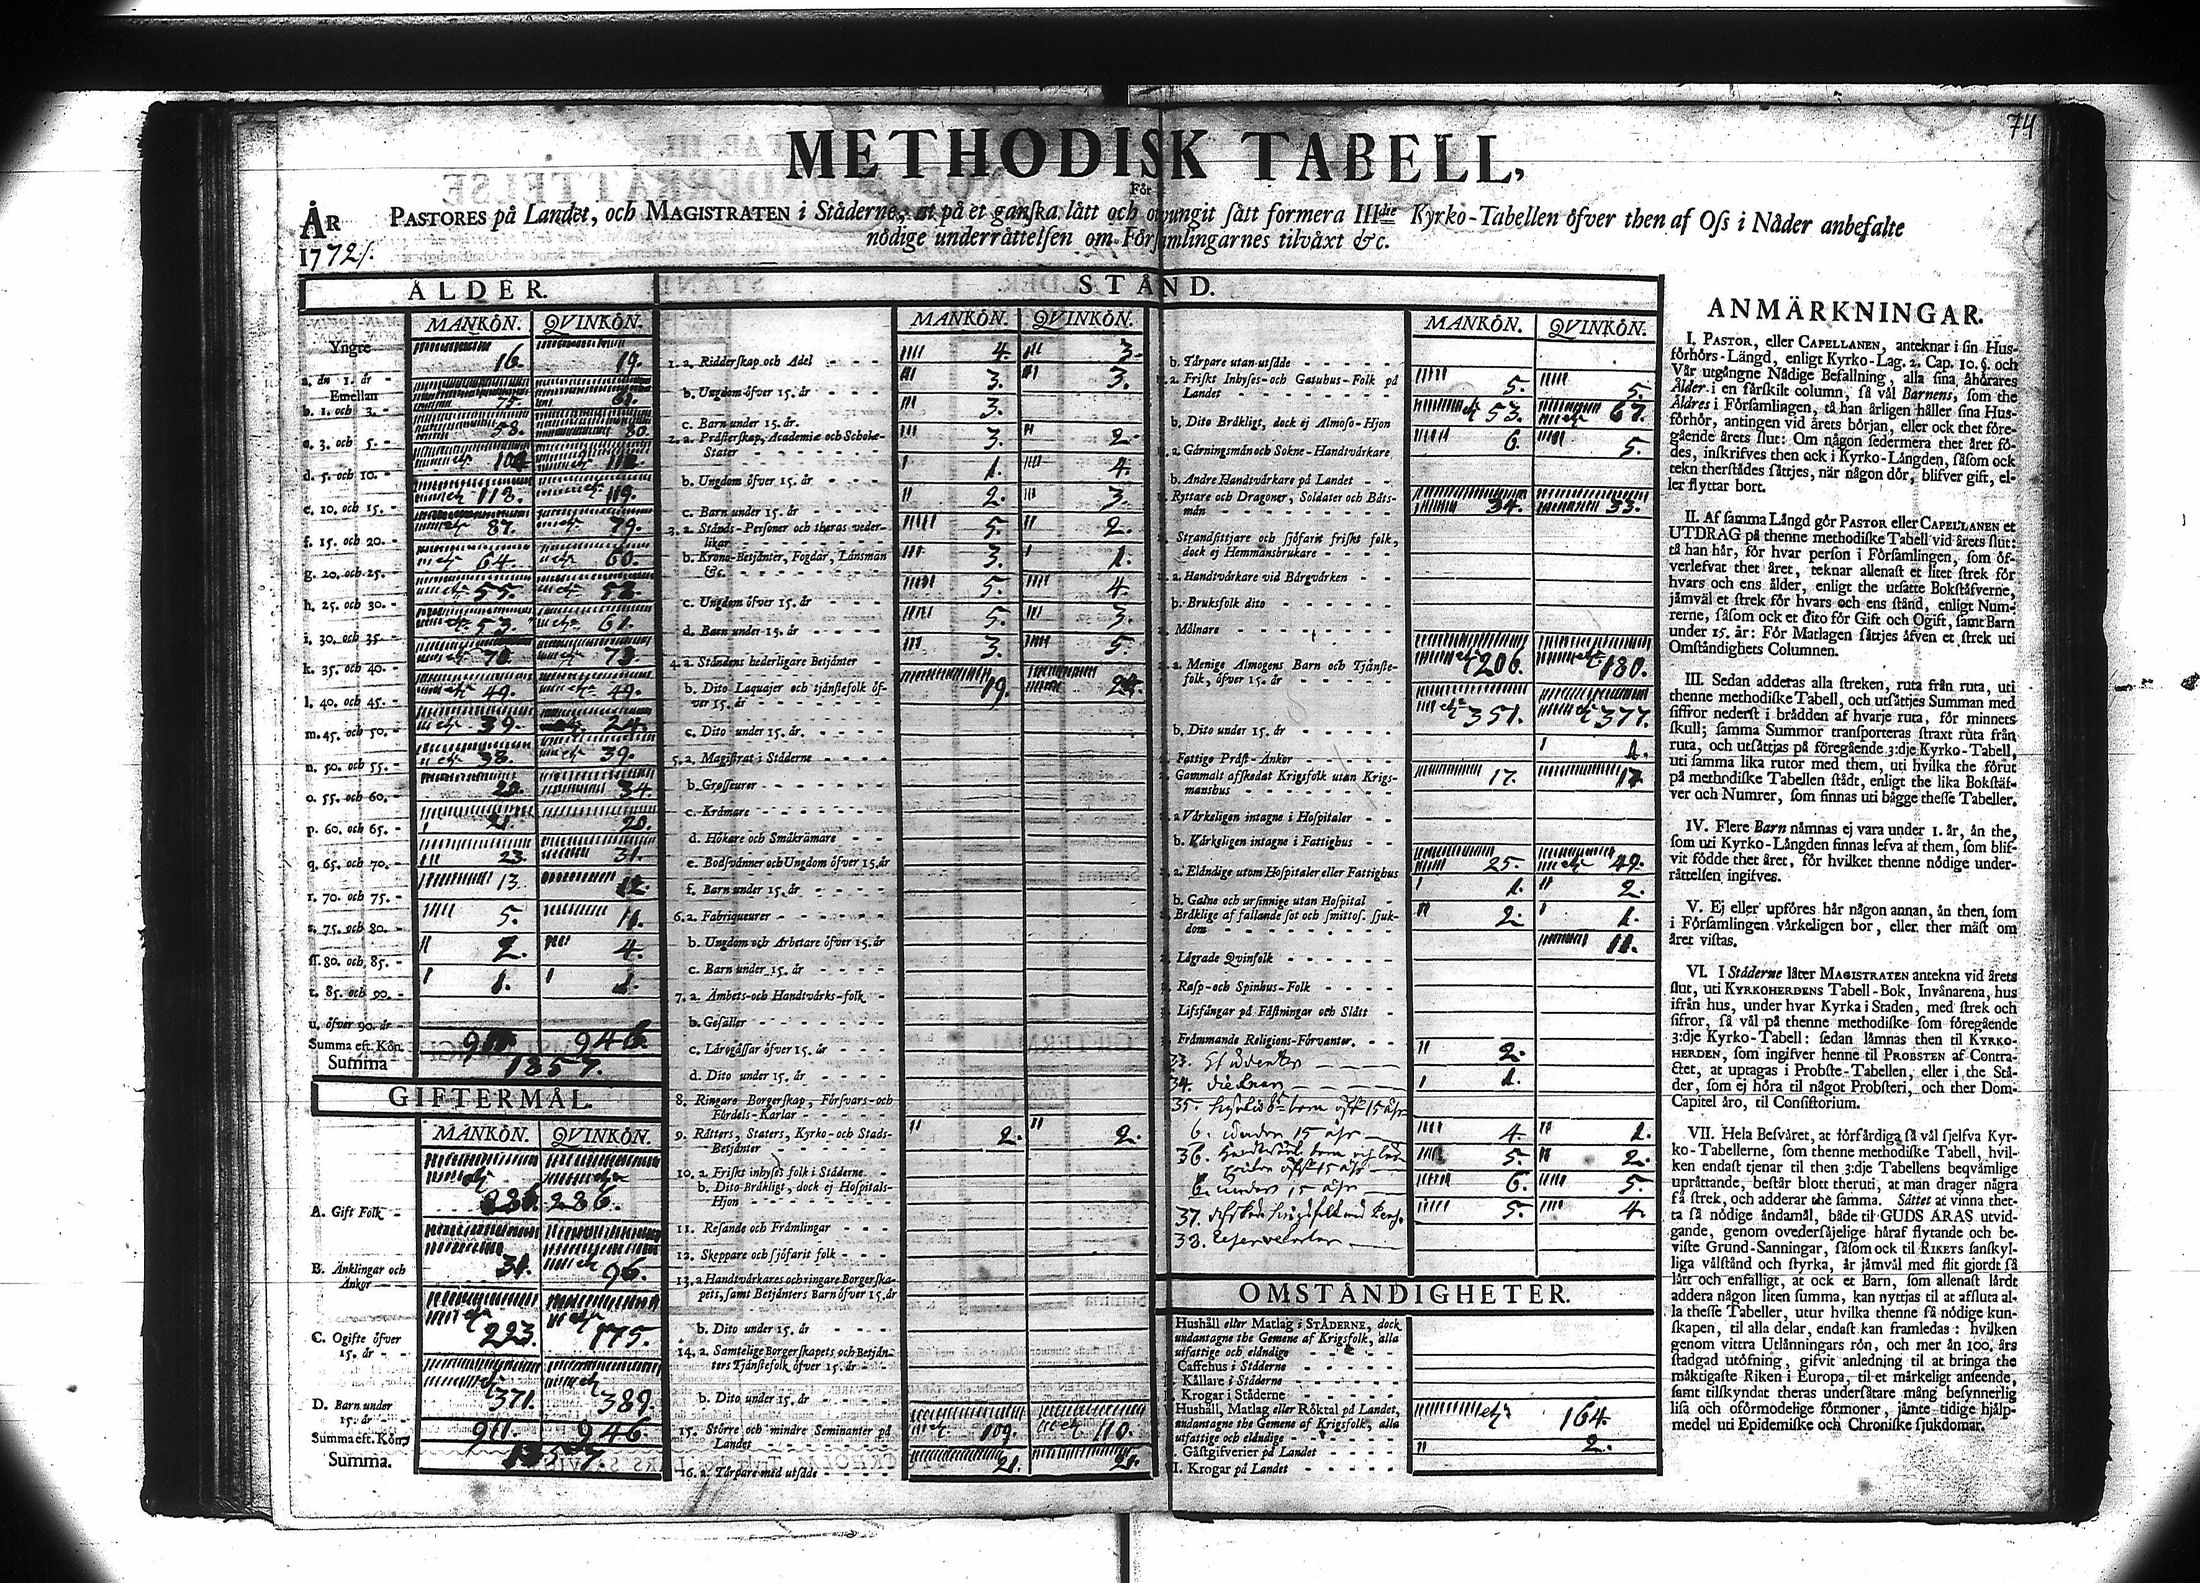 74
METHODISK TABELL,
För
ÅR
1772/.
PASTORES på Landet, och MAGISTRATEN i Städerne, at på et ganska lått och otvungit sått formera IIIdie Kyrko-Tabellen öfver then af Oss i Nåder anbefalte
nödige underråttelsen om Församlingarnes tilvåxt &c.
ÅLDER.
MANKÖN. QVINKÖN.
Yngre 16. 19.
a. än 1. år
Emellan 75.
b. 1. och 3. 58. 80.
c. 3. och 5.
d. 5. och 10. 113. 119.
e. 10. och 15. 87. 79.
f. 15. och 20. 64. 60.
g. 20. och 25. 55.
h. 25. och 30. 53. 61.
i. 30. och 35. 73.
k. 35. och 40. 49. 49.
l. 40. och 45. 39. 24.
m. 45. och 50. 38. 39.
n. 50. och 55. 34.
o. 55. och 60.
p. 60. och 65. 23. 31.
q. 65. och 70. 13. 12.
r. 70. och 75. 5. 11.
s. 75. och 80. 2. 4.
ſſ. 80. och 85. 1. 1.
t. 85. och 90.
u. öfver 90. år
Summa eft. Kön. 911. 946.
Summa 1857.
GIFTERMÅL.
MANKÖN. QVINKÖN.
A. Gift Folk 286. 286.
B. Änklingar och
Änkor 31. 96.
C. Ogifte öfver
15. år 223. 175.
D. Barn under
15. år 371. 389.
Summa eft. Kön 911. 946.
Summa. 1857.
STÅND.
MANKÖN. QVINKÖN.
1. a. Ridderskap och Adel 4. 3.
b. Ungdom öfver 15. år 3. 3.
c. Barn under 15. år. 3.
2. a. Pråsterskap, Academiæ och Schole-
Stater 3. 2.
b. Ungdom öfver 15. år 1. 4.
c. Barn under 15. år 2. 3.
3. a. Stånds-Personer och theras veder-
likar 5. 2.
b. Krono-Betjånter, Fogdar, Länsmån
&c. 3. 1.
c. Ungdom öfver 15. år 5. 4.
d. Barn under 15. år 5. 3.
4. a. Ståndens hederligare Betjånter 3. 5.
b. Dito Laquajer och tjånstefolk öf-
ver 15. år 19.
c. Dito under 15. år.
5. a. Magistrat i Ståderne
b. Grosseurer
c. Kråmare
d. Hökare och Småkråmare
e. Bodsvånner och Ungdom öfver 15. år
f. Barn under 15. år
6. a. Fabriqueurer
b. Ungdom och Arbetare öfver 15. år
c. Barn under 15. år
7. a. Ämbets-och Handtvårks-folk
b. Gesäller
c. Lårogåssar öfver 15. år
d. Dito under 15. år
8. Ringare Borgerskap, Försvars-och
Fördels-Karlar
9. Råtters, Staters, Kyrko-och Stads-
Betjånter 2. 2.
10. a. Friskt inhyses folk i Ståderne.
b. Dito Bråkligt, dock ej Hospitals-
Hjon
11. Resande och Fråmlingar
12. Skeppare och sjöfarit folk
13. a Handtvårkares och ringare Borgerska-
pets, samt Betjånters Barn öfver 15. år
b. Dito under 15. år
14. a. Samtelige Borgerskapets och Betjån-
ters Tjånstefolk öfver 15. år
b. Dito under 15. år
15. Större och mindre Seminanter på
Landet 109. 110.
16. a. Tårpare med utsåde 21. 21.
MANKÖN. QVINKÖN.
b. Tårpare utan utsåde
a. Friskt Inhyses-och Gatuhus-Folk på
Landet 5. 5.
b. Dito Bråkligt, dock ej Almoso-Hjon 53. 67.
a. Gårningsmån och Sokne-Handtvårkare 6. 5.
b. Andre Handtvårkare på Landet
Ryttare och Dragoner, Soldater och Båts-
mån 34. 33.
Strandsittjare och sjöfarit friskt folk,
dock ej Hemmansbrukare
a. Handtvårkare vid Bårgvårken
b. Bruksfolk dito
Mölnare
a. Menige Almogens Barn och Tjånste-
folk, öfver 15. år 206. 180.
b. Dito under 15. år 351. 377.
Fattige Pråst-Änkor 1.
Gammalt afskedat Krigsfolk utan Krigs-
manshus 17. 17.
a Vårkeligen intagne i Hospitaler
b. Vårkeligen intagne i Fattighus
a. Elåndige utom Hospitaler eller Fattighus 25. 49.
b. Galne och ursinnige utan Hospital 1. 2.
Bråklige af fallande sot och smittos. sjuk-
dom 2. 1.
Lågrade Qvinfolk 11.
Rasp-och Spinhus-Folk
Lifsfångar på Fåstningar och Slått
Fråmmande Religions-Förvanter.
33. Studenter 2.
34. 1.
35. barn öfr 15 åhr
6. under 15 åhr 4. 1.
36. 5. 2.
6. under 15 åhr 6. 5.
37. 5. 4.
38.
OMSTÅNDIGHETER.
Hushåll eller Matlag i STÅDERNE, dock
undantagne the Gemene af Krigsfolk, alla
utfattige och elåndige
Caffehus i Ståderne
Kållare i Ståderne
Krogar i Ståderne
Hushåll, Matlag eller Röktal på Landet,
undantagne the Gemene af Krigsfolk, alla
utfattige och elåndige 164.
Gåstgifverier på Landet 2.
VI. Krogar på Landet
ANMÄRKNINGAR.
I. PASTOR, eller CAPELLANEN, anteknar i sin Hus-
förhörs-Långd, enligt Kyrko-Lag. 2. Cap. 10. §. och
Vår utgångne Nådige Befallning, alla sina åhörares
Ålder i en sårskilt column, så vål Barnens, som the
Äldres i Församlingen, tå han årligen håller sina Hus-
förhör, antingen vid årets början, eller ock thet före-
gående årets slut: Om någon sedermera thet året fö-
des, inskrifves then ock i Kyrko-Långden, såsom ock
tekn therstådes såttjes, når någon dör, blifver gift, el-
ler flyttar bort.
II. Af samma Långd gör PASTOR eller CAPELLANEN et
UTDRAG på thenne methodiske Tabell vid årets slut:
tå han hår, för hvar person i Församlingen, som öf-
verlefvat thet året, teknar allenast et litet strek för
hvars och ens ålder, enligt the utsatte Bokståfverne,
jåmvål et strek för hvars och ens stånd, enligt Num-
rerne, såsom ock et dito för Gift och Ogift, samt Barn
under 15. år: För Matlagen såttjes åfven et strek uti
Omståndighets Columnen.
III. Sedan adderas alla streken, ruta från ruta, uti
thenne methodiske Tabell, och utsåttjes Summan med
siffror nederst i brådden af hvarje ruta, för minnets
skull; samma Summor transporteras straxt ruta från
ruta, och utsåttjas på föregående 3:dje Kyrko-Tabell,
uti samma lika rutor med them, uti hvilka the förut
på methodiske Tabellen stådt, enligt the lika Bokståf-
ver och Numrer, som finnas uti bågge thesse Tabeller.
IV. Flere Barn nåmnas ej vara under 1. år, ån the,
som uti Kyrko-Långden finnas lefva af them, som blif-
vit födde thet året, för hvilket thenne nödige under-
råttelsen ingifves.
V. Ej eller upföres hår någon annan, ån then, som
i Församlingen vårkeligen bor, eller ther måst om
året vistas.
VI. I Ståderne låter MAGISTRATEN antekna vid årets
slut, uti KYRKOHERDENS Tabell-Bok, Invånarena, hus
ifrån hus, under hvar Kyrka i Staden, med strek och
sifror, så vål på thenne methodiske som föregående
3:dje Kyrko-Tabell: sedan låmnas then til KYRKO-
HERDEN, som ingifver henne til PROBSTEN af Contra-
ctet, at uptagas i Probste-Tabellen, eller i the Stå-
der, som ej höra til något Probsteri, och ther Dom-
Capitel åro, til Consistorium.
VII. Hela Besvåret, at förfårdiga så vål sjelfva Kyr-
ko-Tabellerne, som thenne methodiske Tabell, hvil-
ken endast tjenar til then 3:dje Tabellens beqvåmlige
upråttande, består blott theruti, at man drager några
få strek, och adderar the samma. Såttet at vinna thet-
ta så nödige åndamål, både til GUDS ÅRAS utvid-
gande, genom ovedersåjelige håraf flytande och be-
viste Grund-Sanningar, såsom ock til RIKETS sanskyl-
liga vålstånd och styrka, år jåmvål med flit gjordt så
lått och enfalligt, at ock et Barn, som allenast lårdt
addera någon liten summa, kan nyttjas til at afsluta al-
la thesse Tabeller, utur hvilka thenne så nödige kun-
skapen, til alla delar, endast kan framledas: hvilken
genom vittra Utlånningars rön, och mer ån 100. års
stadgad utöfning, gifvit anledning til at bringa the
måktigaste Riken i Europa, til et mårkeligt anseende,
samt tilskyndat theras undersåtare mång besynnerlig
lisa och oförmodelige förmoner, jåmte tidige hjålp-
medel uti Epidemiske och Chroniske sjukdomar.